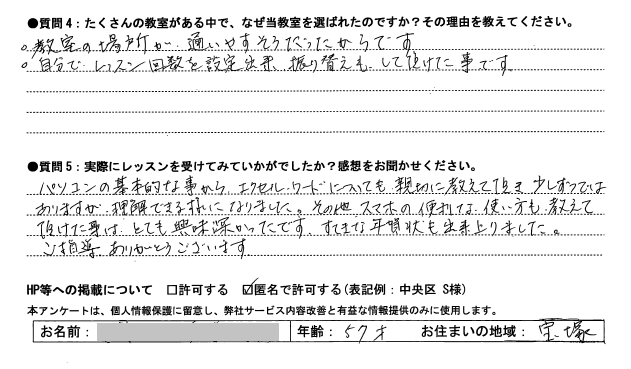 ●質問4：たくさんの教室がある中で、なぜ当教室を選ばれたのですか？その理由を教えてください。
。教室の場所が、通いやすそうだったからです
。自分で、レッスン回数を設定出来、振り替えも、して頂けた事です。
●質問5：実際にレッスンを受けてみていかがでしたか？感想をお聞かせください。
パソコンの基本的な事から、エクセル・ワードについても、親切に教えて頂き 少しずつでは
ありますが、理解できる様になりました。その他、スマホの便利な、使い方も、教えて
頂けた事は、とても興味深かったです、すてきな年賀状も出来上りました。
ご指導 ありがとうございます
HP等への掲載について　□許可する　☑匿名で許可する(表記例：中央区 S様)
本アンケートは、個人情報保護に留意し、弊社サービス内容改善と有益な情報提供のみに使用します。
お名前：　年齢：57才　お住まいの地域：宝塚